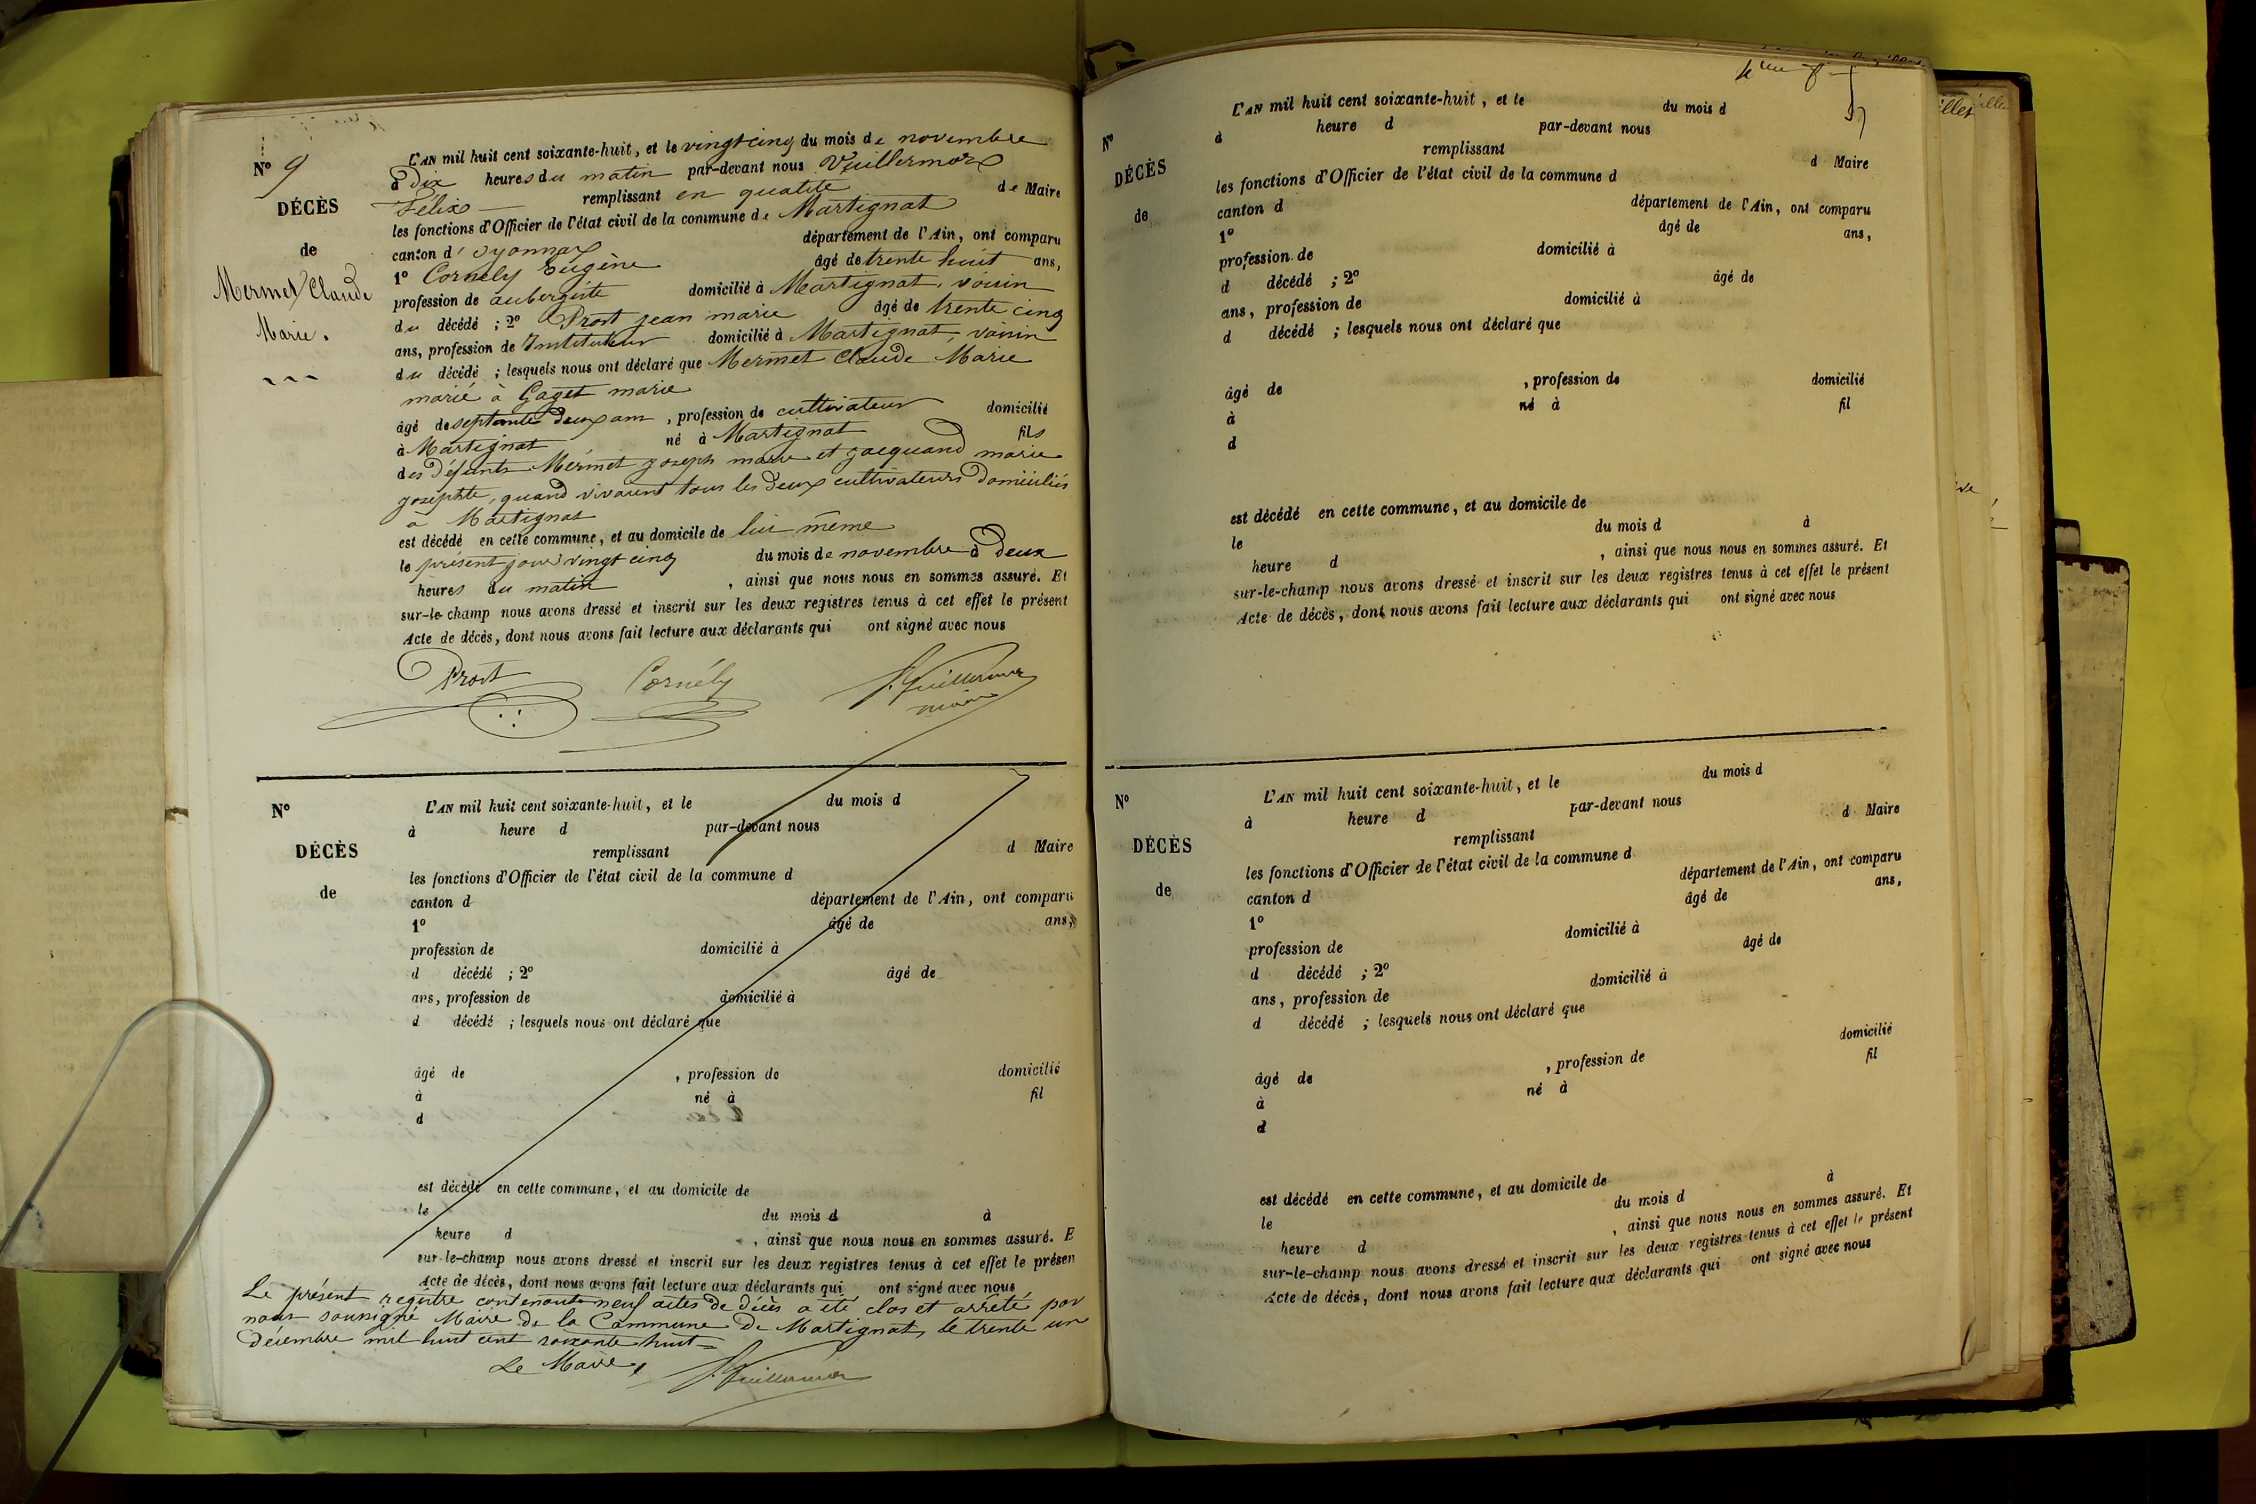 N° 9
DÉCÈS
de
Mermet Claude
Marie.
L'AN mil huit cent soixante-huit, et le vingt cinq du mois de novembre
à Dix heures du matin par-devant nous Vuillermoz
Félix remplissant en qualité de Maire
les fonctions d'Officier de l'état civil de la commune de Martignat
canton d'oyonnax département de l'Ain, ont comparu
1° Cornely Eugène âgé de trente huit ans,
profession de aubergiste domicilié à Martignat, voisin
du décédé ; 2° Prost jean marie âgé de trente cinq
ans, profession de Instituteur domicilié à Martignat, voisin
du décédé ; lesquels nous ont déclaré que Mermet Claude Marie
marié à Gaget marie
âgé de septante deux ans, profession de cultivateur domicilié
à Martignat né à Martignat fils
des défunts Mermet joseph marie et jacquand marie
josephte, quand vivaient tous les deux cultivateurs domiciliés
à Martignat
est décédé en cette commune, et au domicile de lui même
le présent jour vingt cinq du mois de novembre à Deux
heures du matin, ainsi que nous nous en sommes assuré. Et
sur-le-champ nous avons dressé et inscrit sur les deux registres tenus à cet effet le présent
Acte de décès, dont nous avons fait lecture aux déclarants qui ont signé avec nous
Prost Cornély f. Vuillermoz
maire
N°
DÉCÈS
de
L'AN mil huit cent soixante-huit, et le du mois d
à heure d par-devant nous
remplissant d Maire
les fonctions d'Officier de l'état civil de la commune d
canton d département de l'Ain, ont comparu
1° âgé de ans,
profession de domicilié à
d décédé ; 2° âgé de
ans, profession de domicilié à
d décédé ; lesquels nous ont déclaré que
âgé de , profession de domicilié
à né à fil
d
est décédé en cette commune, et au domicile de
le du mois d à
heure d , ainsi que nous nous en sommes assuré. E
sur-le-champ nous avons dressé et inscrit sur les deux registres tenus à cet effet le présen
Acte de décès, dont nous avons fait lecture aux déclarants qui ont signé avec nous
Le présent registre contenant neuf actes de décès a été clos et arrêté par
nous soussigné Maire de la Commune de Martignat, le trente un
décembre mil huit cent soixante huit
Le Maire, f. Vuillermoz
N°
DÉCÈS
de
L'AN mil huit cent soixante-huit, et le du mois d
à heure d par-devant nous
remplissant d Maire
les fonctions d'Officier de l'état civil de la commune d
canton d département de l'Ain, ont comparu
1° âgé de ans,
profession de domicilié à
d décédé ; 2° âgé de
ans, profession de domicilié à
d décédé ; lesquels nous ont déclaré que
âgé de , profession de domicilié
à né à fil
d
est décédé en cette commune, et au domicile de
le du mois d à
heure d , ainsi que nous nous en sommes assuré. Et
sur-le-champ nous avons dressé et inscrit sur les deux registres tenus à cet effet le présent
Acte de décès, dont nous avons fait lecture aux déclarants qui ont signé avec nous
N°
DÉCÈS
de
L'AN mil huit cent soixante-huit, et le du mois d
à heure d par-devant nous
remplissant d Maire
les fonctions d'Officier de l'état civil de la commune d
canton d département de l'Ain, ont comparu
1° âgé de ans,
profession de domicilié à
d décédé ; 2° âgé de
ans, profession de domicilié à
d décédé ; lesquels nous ont déclaré que
âgé de , profession de domicilié
à né à fil
d
est décédé en cette commune, et au domicile de
le du mois d à
heure d , ainsi que nous nous en sommes assuré. Et
sur-le-champ nous avons dressé et inscrit sur les deux registres tenus à cet effet le présent
Acte de décès, dont nous avons fait lecture aux déclarants qui ont signé avec nous